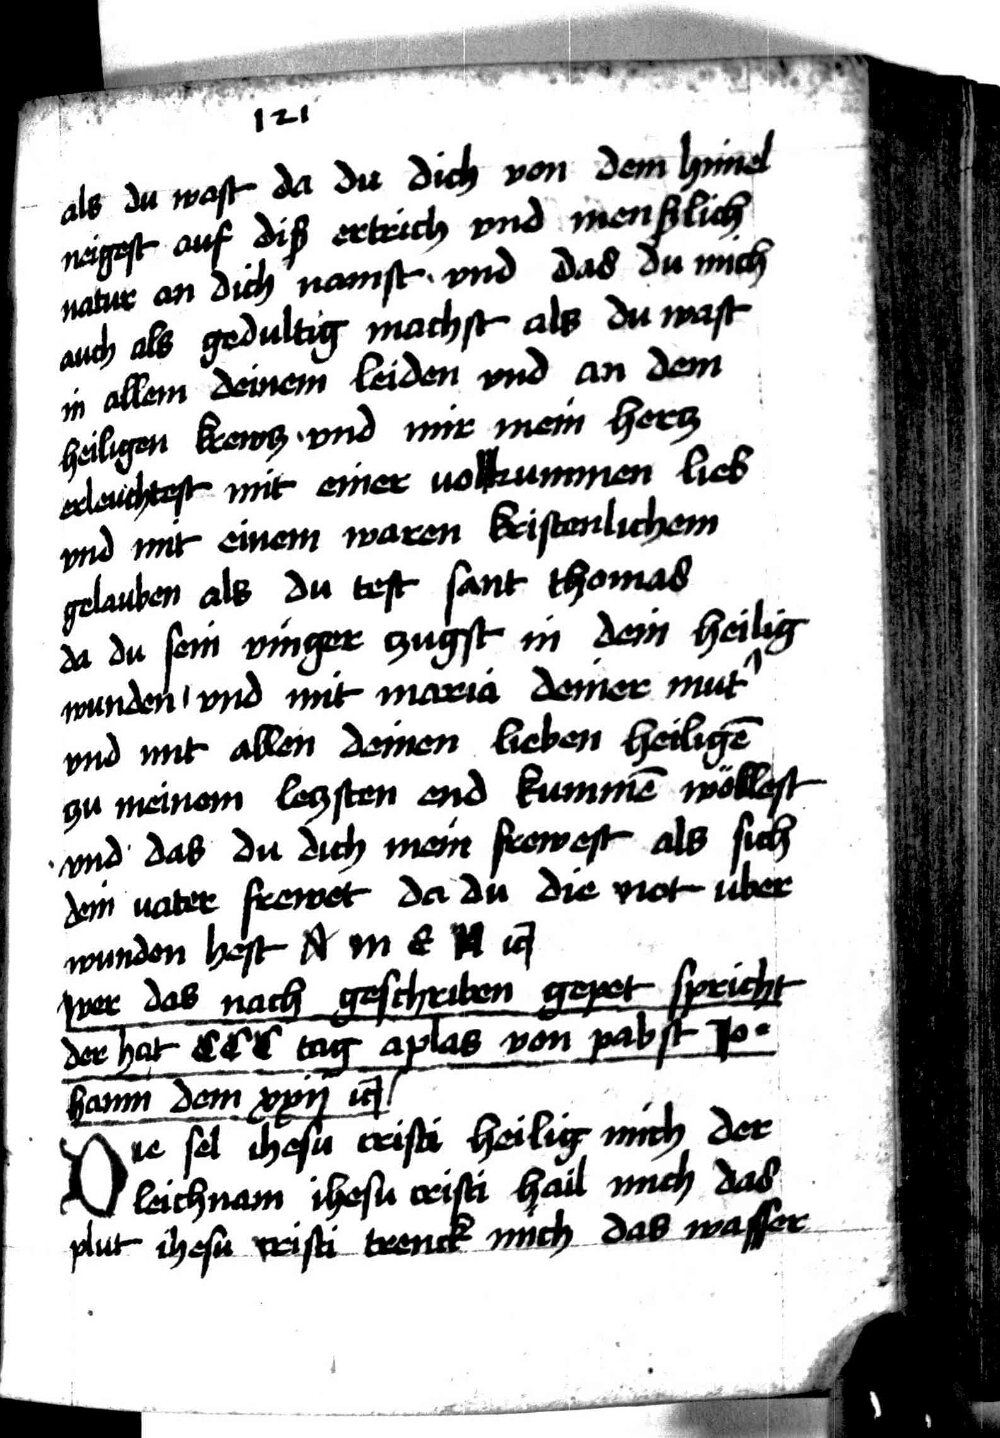 121
als du wast da du dich von dem himel
neigest auf diß ertrich vnd menßlich
natur an dich namst · vnd das du mich
auch als gedultig machst als du wast
in allem deinem leiden vnd an dem
heiligen krewtz · vnd mir mein hertz
erleuchtest mit einer volkummen lieb
vnd mit einem waren kristenlichem
gelauben als du test sant thomas
da du sein vinger tzugst in dein heilig
wunden / vnd mit maria deiner mut᾿
vnd mit allen deinen lieben heiligē
tzu meinem letzsten end kummē wöllest
· vnd das du dich mein frewest als sich
dein vater frewet da du die not uber
wunden hest A M E N
wer das nach geschriben gepet spricht
der hat CCC tag aplas von pabst Jo-
hann dem xxij
Die sel ihesu cristi heilig mich der
leichnam ihesu cristi hail mich das
plut ihesu cristi trenck mich das wasser